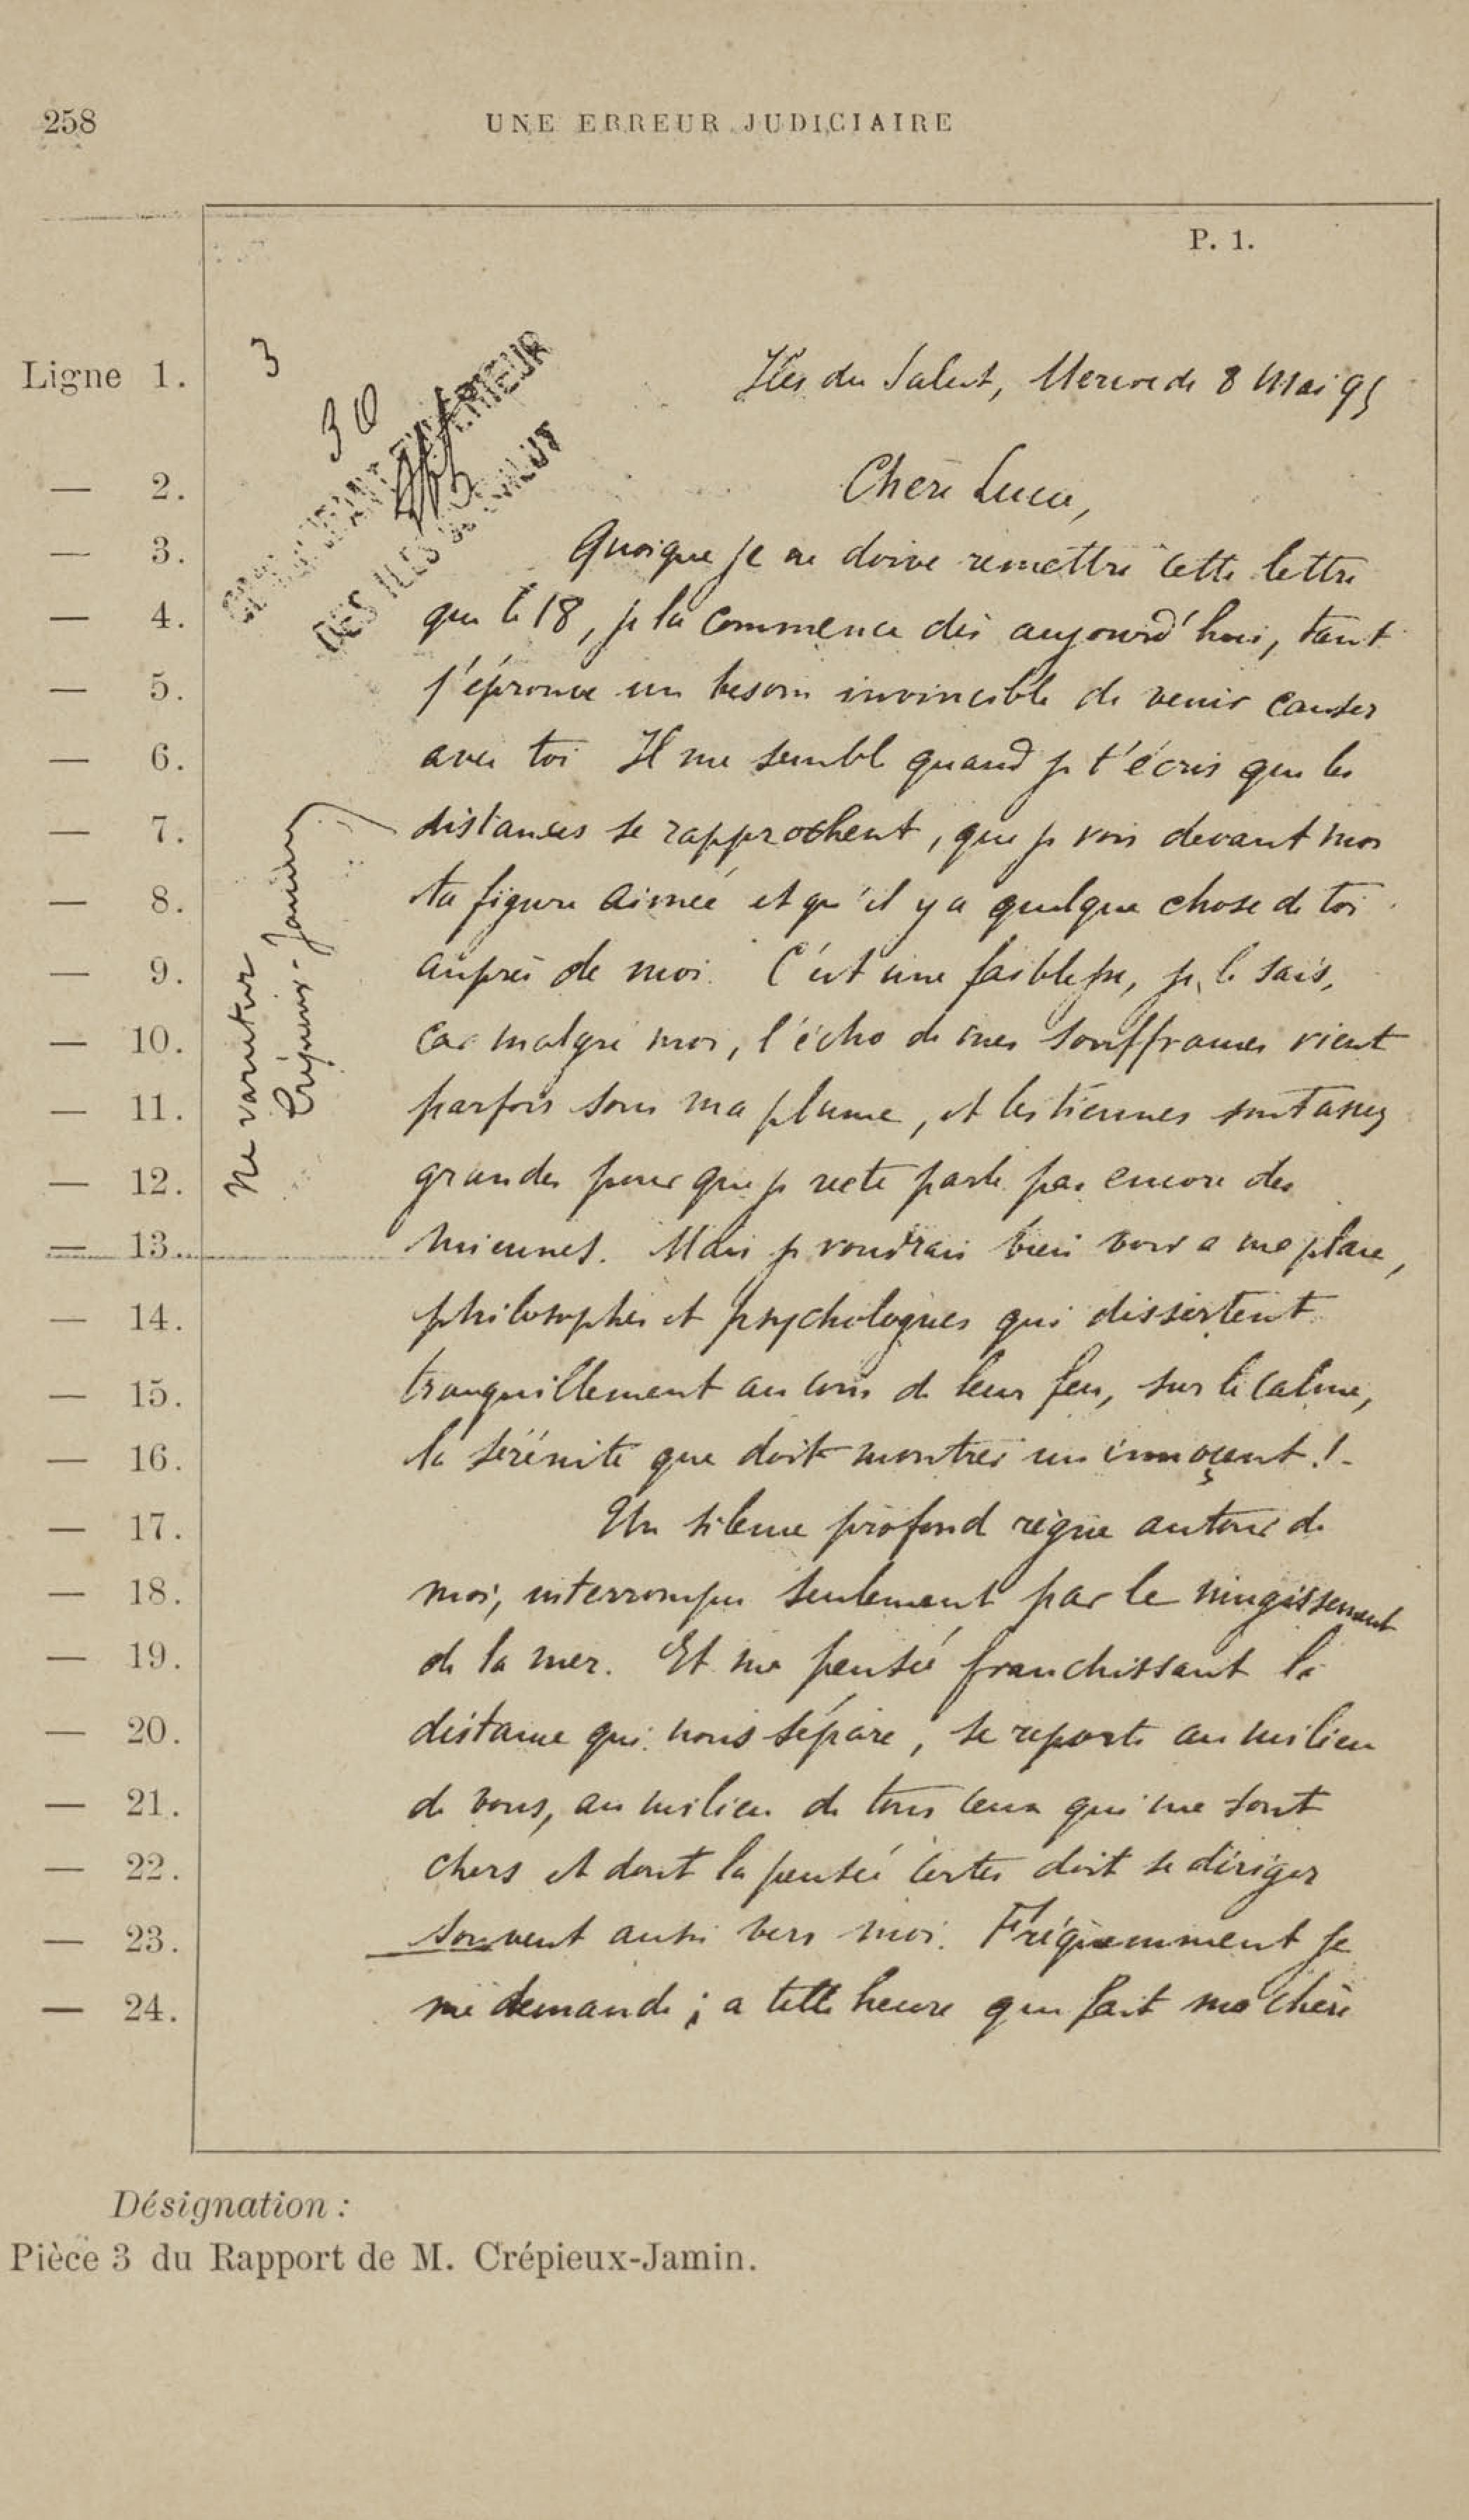 258
UNE ERREUR JUDICIAIRE
P. 1.
3
30
DES ILES DU SALUT
Ne varietur
Crépieux-Jamin
Ligne 1. Iles du Salut, Mercredi 8 Mai 95
— 2. Chère Lucie,
— 3. Quoique je ne doive remettre cette lettre
— 4. que le 18, je la commence dès aujourd'hui, tant
— 5. j'éprouve un besoin invincible de venir causer
— 6. avec toi Il me semble quand je t'écris que les
— 7. distances se rapprochent, que je vois devant moi
— 8. ta figure aimée et qu'il y a quelque chose de toi
— 9. auprès de moi. C'est une faiblesse, je le sais,
— 10. car malgré moi, l'écho de mes souffrances vient
— 11. parfois sous ma plume, et les tiennes sont assez
— 12. grandes pour que je ne te parle pas encore des
— 13. miennes. Mais je voudrais bien voir a ma place,
— 14. philosophes et psychologues qui dissertent
— 15. tranquillement au coin de leur feu, sur le calme,
— 16. la sérénité que doit montrer un innoçent !-
— 17. Un silence profond règne autour de
— 18. moi, interrompu seulement par le mugissement
— 19. de la mer. Et ma pensée franchissant la
— 20. distance qui nous sépare, se reporte au milieu
— 21. de vous, au milieu de tous ceux qui me sont
— 22. chers et dont la pensée certes doit se diriger
— 23. souvent aussi vers moi. Fréquemment je
— 24. me demande ; a telle heure que fait ma chère
Désignation :
Pièce 3 du Rapport de M. Crépieux-Jamin.